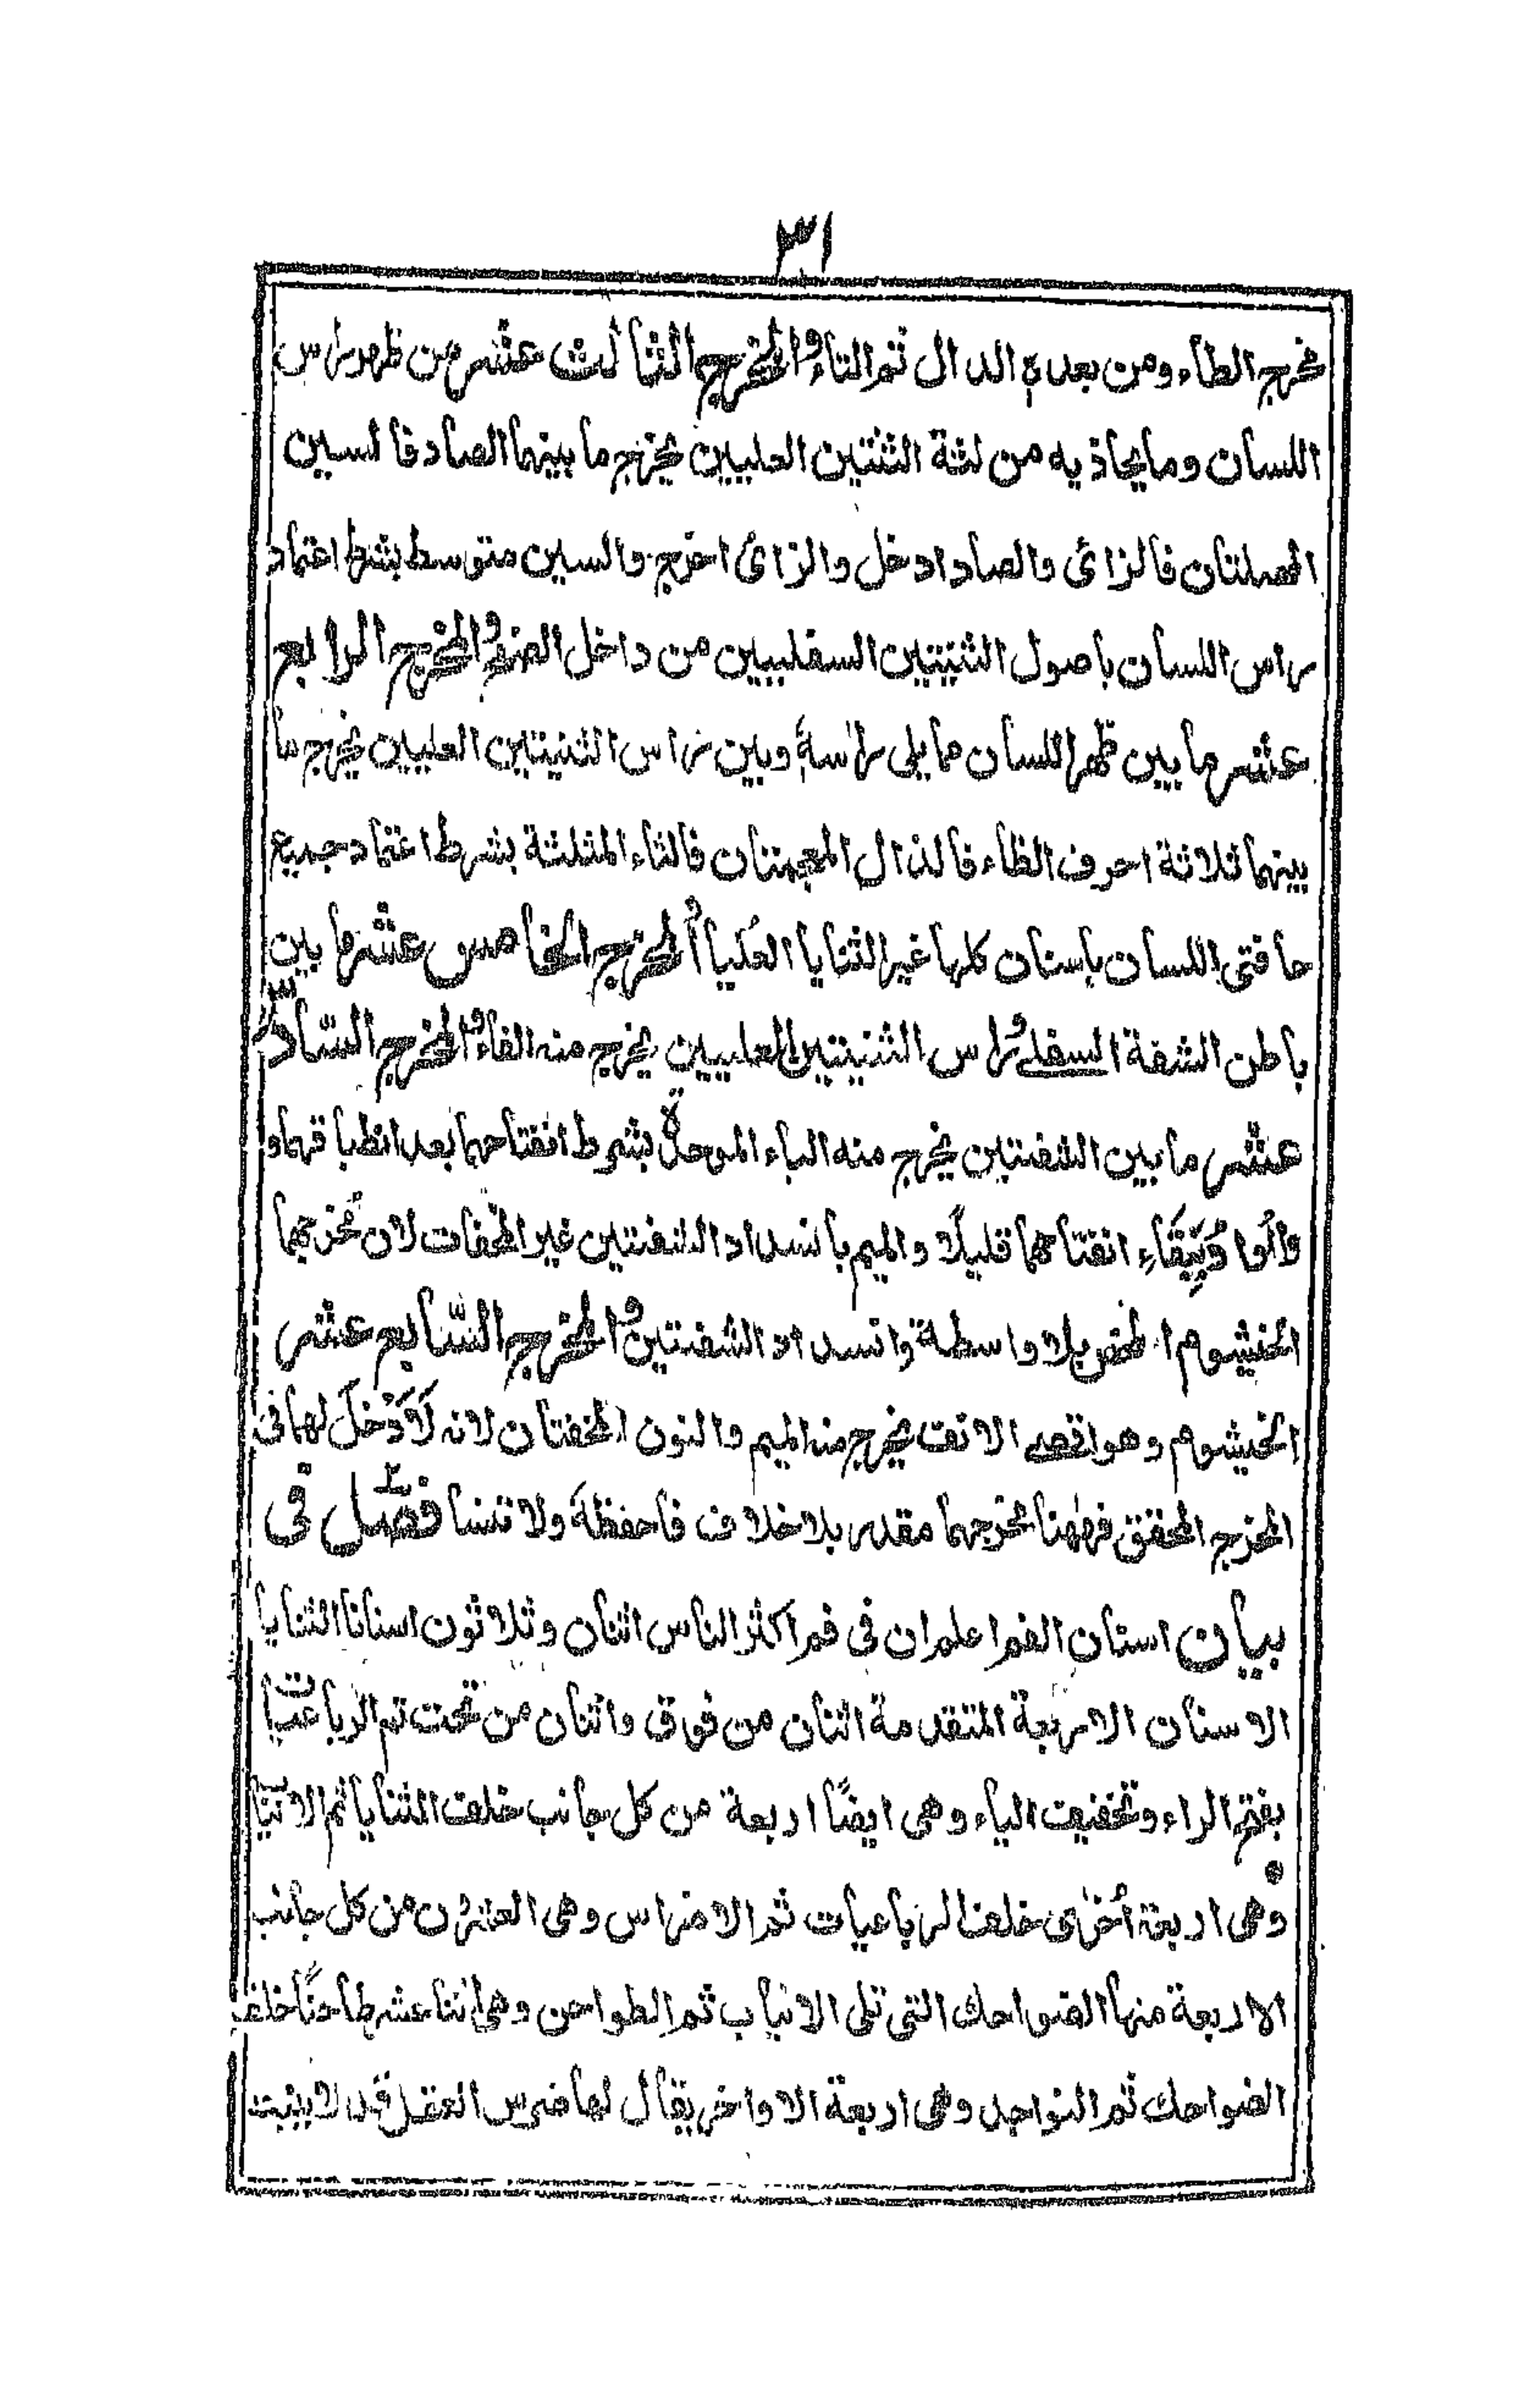 ٣١
مخرج الطاء ومن بعده الدال ثم التاء والمخرج الثالث عشر من ظهر راس
اللسان وما يحاذيه من لثة الثنتين العليين يخرج ما بينهما الصاد فالسين
المهملتان فالزائ والصاد ادخل والزائ اخرج والسين متوسط بشرط اعتماد
راس اللسان باصول الثنيتين السفليين من داخل الصفر والمخرج الرابع
عشر ما بين ظهر اللسان مما يلي راسه وبين راس الثنيتين العليين يخرج ما
بينهما ثلاثة احرف الظاء فالذال المعجمتان فالثاء المثلثة بشرط اعتماد جميع
حافتي اللسان باسنان كلها غير الثنايا العليا المخرج الخامس عشر ما بين
باطن الشفة السفلے وراس الثنيتين العليين يخرج منه الفاء والمخرج السادس
عشر ما بين الشفتين يخرج منه الباء الموحدة بشرط انفتاحهما بعد انطباقهما و
والوا وَبِبَقَاءِ انفتاحهما قليلًا والميم بانسداد الشفتين غير المخفات لان مخرجهما
الخيشوم بلا واسطة وانسداد الشفتين والمخرج السّابع عشر
الخيشوم وهو اقصے الانف يخرج منه الميم والنون المخفتان لانه لَا دَخْلَ لهما فى
المخرج المحقق فههنا مخرجهما مقدر بلا خلاف فاحفظهَ ولا تنسا فصّل فى
بيان اسنان الفم اعلم ان فى فم اكثر الناس اثنان وثلاثون اسنانا الثنايا
الاسنان الاربعة المتقدمة اثنان من فوق واثنان من تحت ثم الرباعيات
بفتح الراء وتخفيف الياء وهى ايضًا اربعة من كل جانب خلف الثنايا ثم الانياب
وهى اربعة أخرٰى خلف الرباعيات ثم الاضراس وهى العشرون من كل جانب
الاربعة منها الضواحك التى تلى الانياب ثم الطواحن وهى اثنا عشر طاحنًا خلف
الضواحك ثم النواجد وهى اربعة الاواخر يقال لها ضرس العقل قد لا ينبت